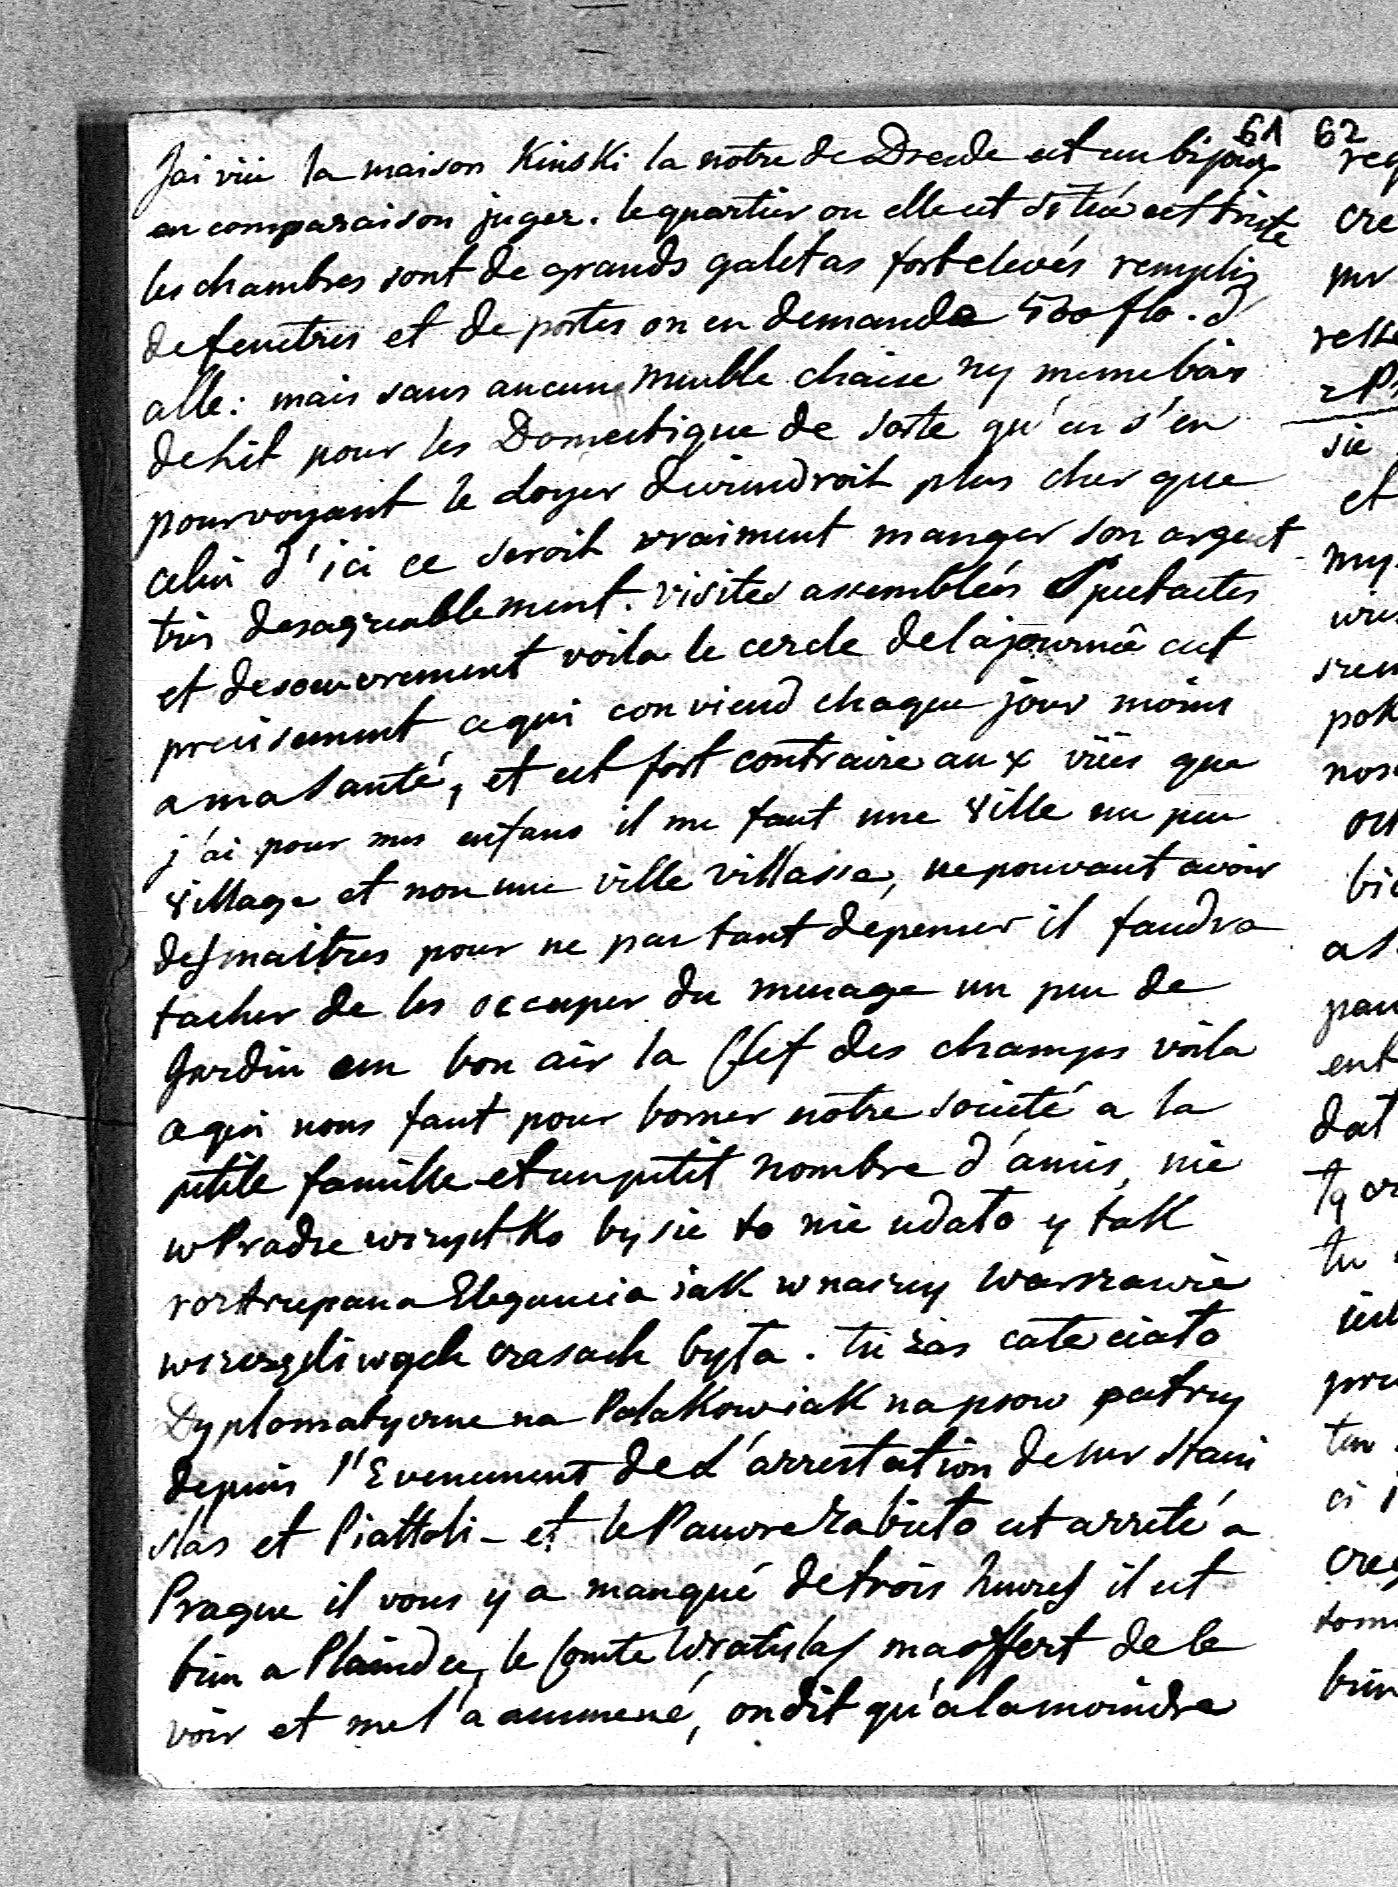 61
Jai viii la maison Kinski la notre de Dresde est un bijoux
en comparaison juger. le quartier ou elle est située est triste
les chambres sont de grands galetas fort elevés remplis
de fenetres et de portes on en demande 500 flo. d'
alle: mais sans aucune meuble chaise ny meme bois
de lit pour les Domestique de sorte qu'en s'en
pourvoyant le Loyer deviendroit plus cher que
celui d'ici ce seroit vraiment manger son argent
très desagreablement. visites assemblées Spectacles
et desoeuvrement voila le cercle de la journée est
precisement ce qui conviend chaque jour moins
a ma santé, et est fort contraire aux vües que
j'ai pour mes enfans il me faut une ville un peu
village et non une ville villasse, ne pouvant avoir
des maitres pour ne pas tant dépenser il faudra
tacher de les occuper du menage un peu de
Jardin un bon air la Clef des champs voila
ce qui nous faut pour borner notre societé a la
petite famille et un petit nombre d'amis, nie
w Pradze wszystko by sie to nie udało y tak
roztrzepana Elegancia iak w naszey Warszawie
w szczęsliwych czasach była. tu zas całe ciało
Dyplomatyczne na Polakow iak na psow patrzy
depuis l'Evenement de L'arrestation de mr Stani
slas et Piattoli - et le Pauvre Zabieło est arreté a
Prague il vous y a manqué de trois heures il est
bien a Plaindre, le Comte Wratislas m'a offert de le
voir et me l'a ammené, on dit qu'a la moindre
62